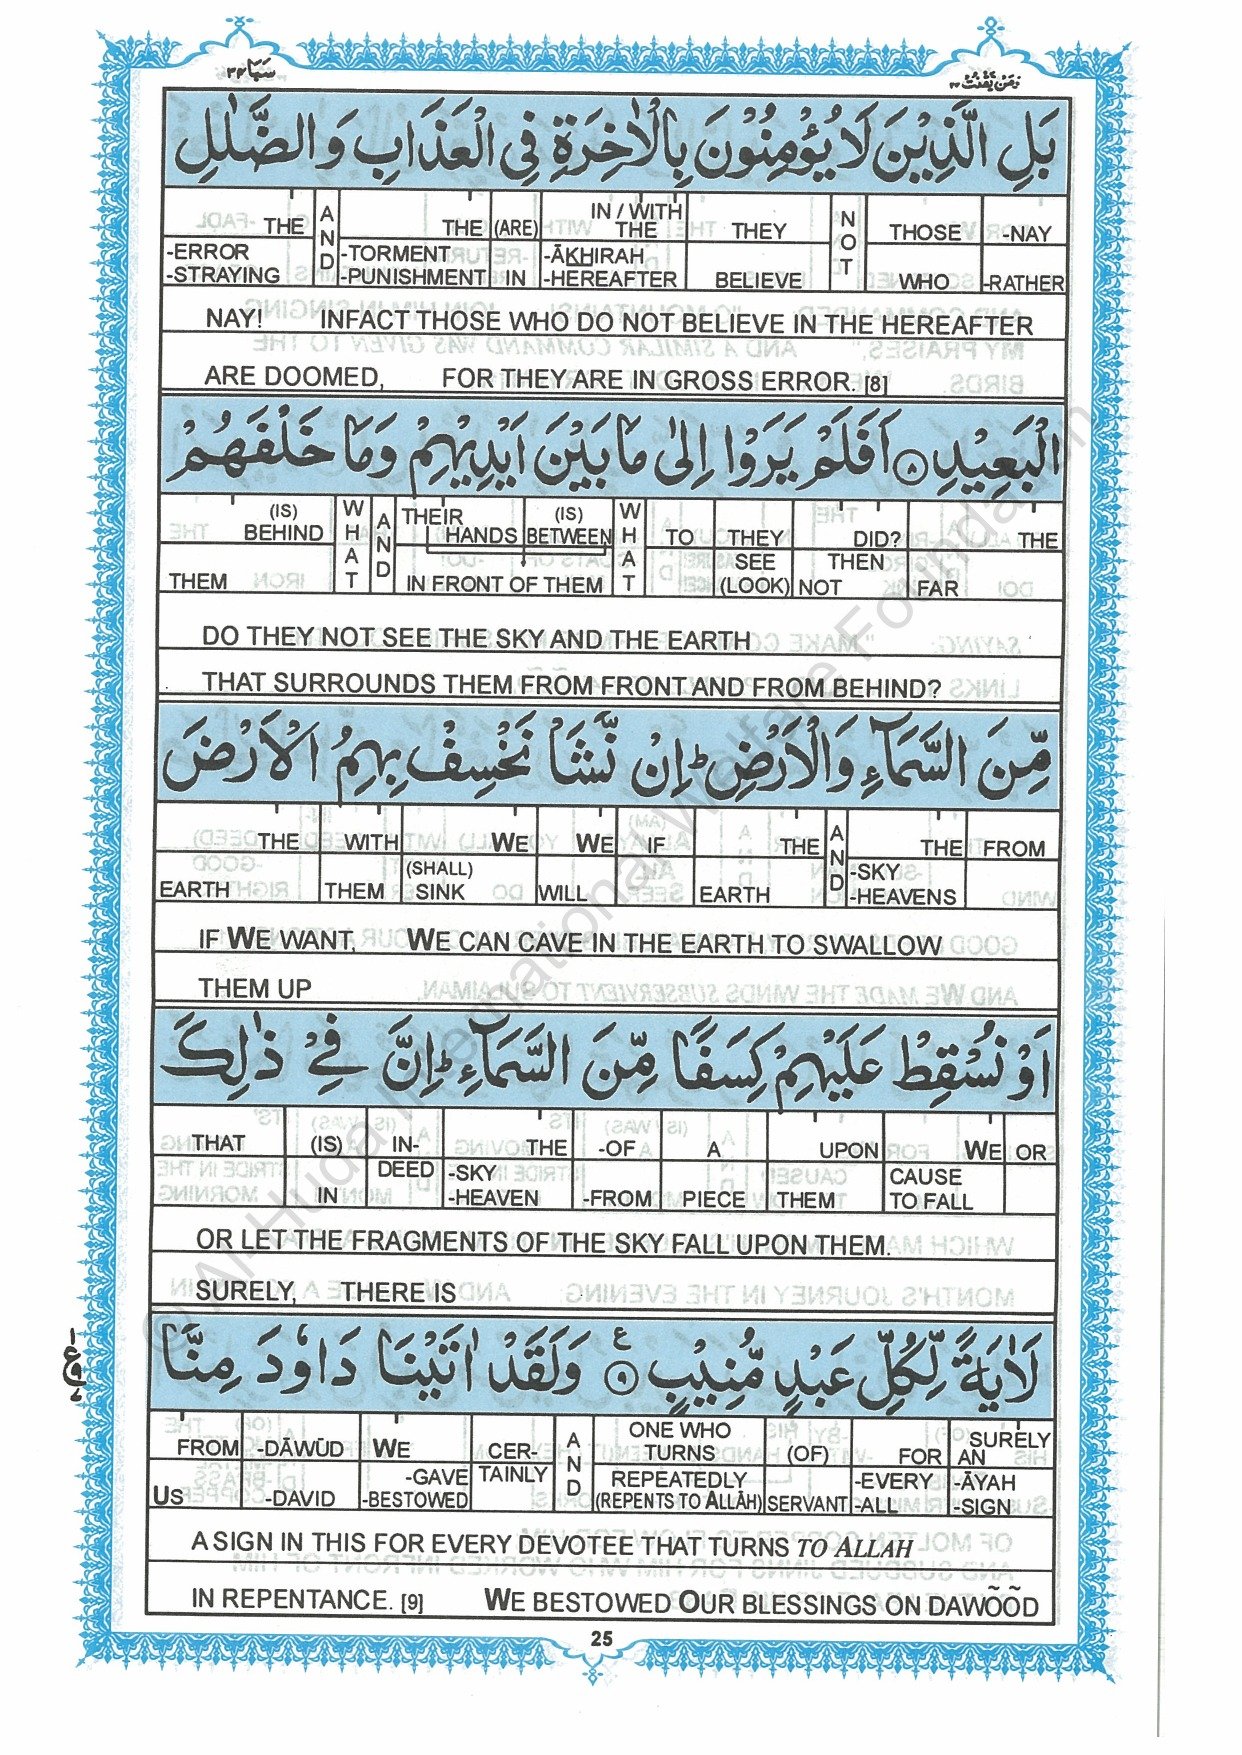 سبا ٣٤ ومن يقنت ٢٢
بَلِ الَّذِيْنَ لَا يُؤْمِنُوْنَ بِالْاٰخِرَةِ فِي الْعَذَابِ وَالضَّلٰلِ
THE AND THE (ARE) IN / WITH THE THEY NOT THOSE -NAY
-ERROR -STRAYING -TORMENT -PUNISHMENT IN -ĀKHIRAH -HEREAFTER BELIEVE WHO -RATHER
NAY! INFACT THOSE WHO DO NOT BELIEVE IN THE HEREAFTER
ARE DOOMED, FOR THEY ARE IN GROSS ERROR. [8]
الْبَعِيْدِ ۝٨ اَفَلَمْ يَرَوْا اِلٰى مَا بَيْنَ اَيْدِيْهِمْ وَمَا خَلْفَهُمْ
(IS) BEHIND WHAT AND THEIR HANDS (IS) BETWEEN WHAT TO THEY DID? THE
THEM IN FRONT OF THEM SEE (LOOK) NOT THEN FAR
DO THEY NOT SEE THE SKY AND THE EARTH
THAT SURROUNDS THEM FROM FRONT AND FROM BEHIND?
مِّنَ السَّمَآءِ وَالْاَرْضِ ؕ اِنْ نَّشَاْ نَخْسِفْ بِهِمُ الْاَرْضَ
THE WITH WE WE IF THE AND THE FROM
EARTH THEM (SHALL) SINK WILL EARTH -SKY -HEAVENS
IF WE WANT, WE CAN CAVE IN THE EARTH TO SWALLOW
THEM UP
اَوْ نُسْقِطْ عَلَيْهِمْ كِسَفًا مِّنَ السَّمَآءِ ؕ اِنَّ فِيْ ذٰلِكَ
THAT (IS) IN- THE -OF A UPON WE OR
IN DEED -SKY -HEAVEN -FROM PIECE THEM CAUSE TO FALL
OR LET THE FRAGMENTS OF THE SKY FALL UPON THEM.
SURELY, THERE IS
لَاٰيَةً لِّكُلِّ عَبْدٍ مُّنِيْبٍ ۝٩ ع وَلَقَدْ اٰتَيْنَا دَاوٗدَ مِنَّا
FROM -DĀWŪD WE CER- AND ONE WHO TURNS (OF) FOR SURELY AN
US -DAVID -GAVE -BESTOWED TAINLY REPEATEDLY (REPENTS TO ALLĀH) SERVANT -EVERY -ALL -ĀYAH -SIGN
A SIGN IN THIS FOR EVERY DEVOTEE THAT TURNS TO ALLAH
IN REPENTANCE. [9] WE BESTOWED OUR BLESSINGS ON DAWÕÕD
25
© Al-Huda International Welfare Foundation